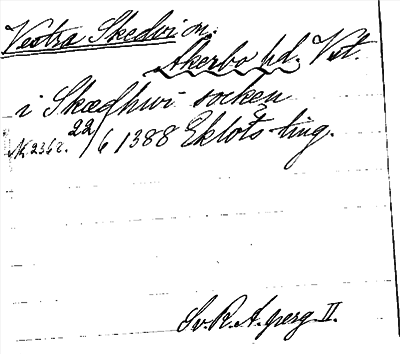 Vestra Skedvi sn.
Åkerbo hd. Vst.
i Skædhwi socken
N. 2362. 22/6 1388 Eklots ting.
Sv. R. A. perg II.